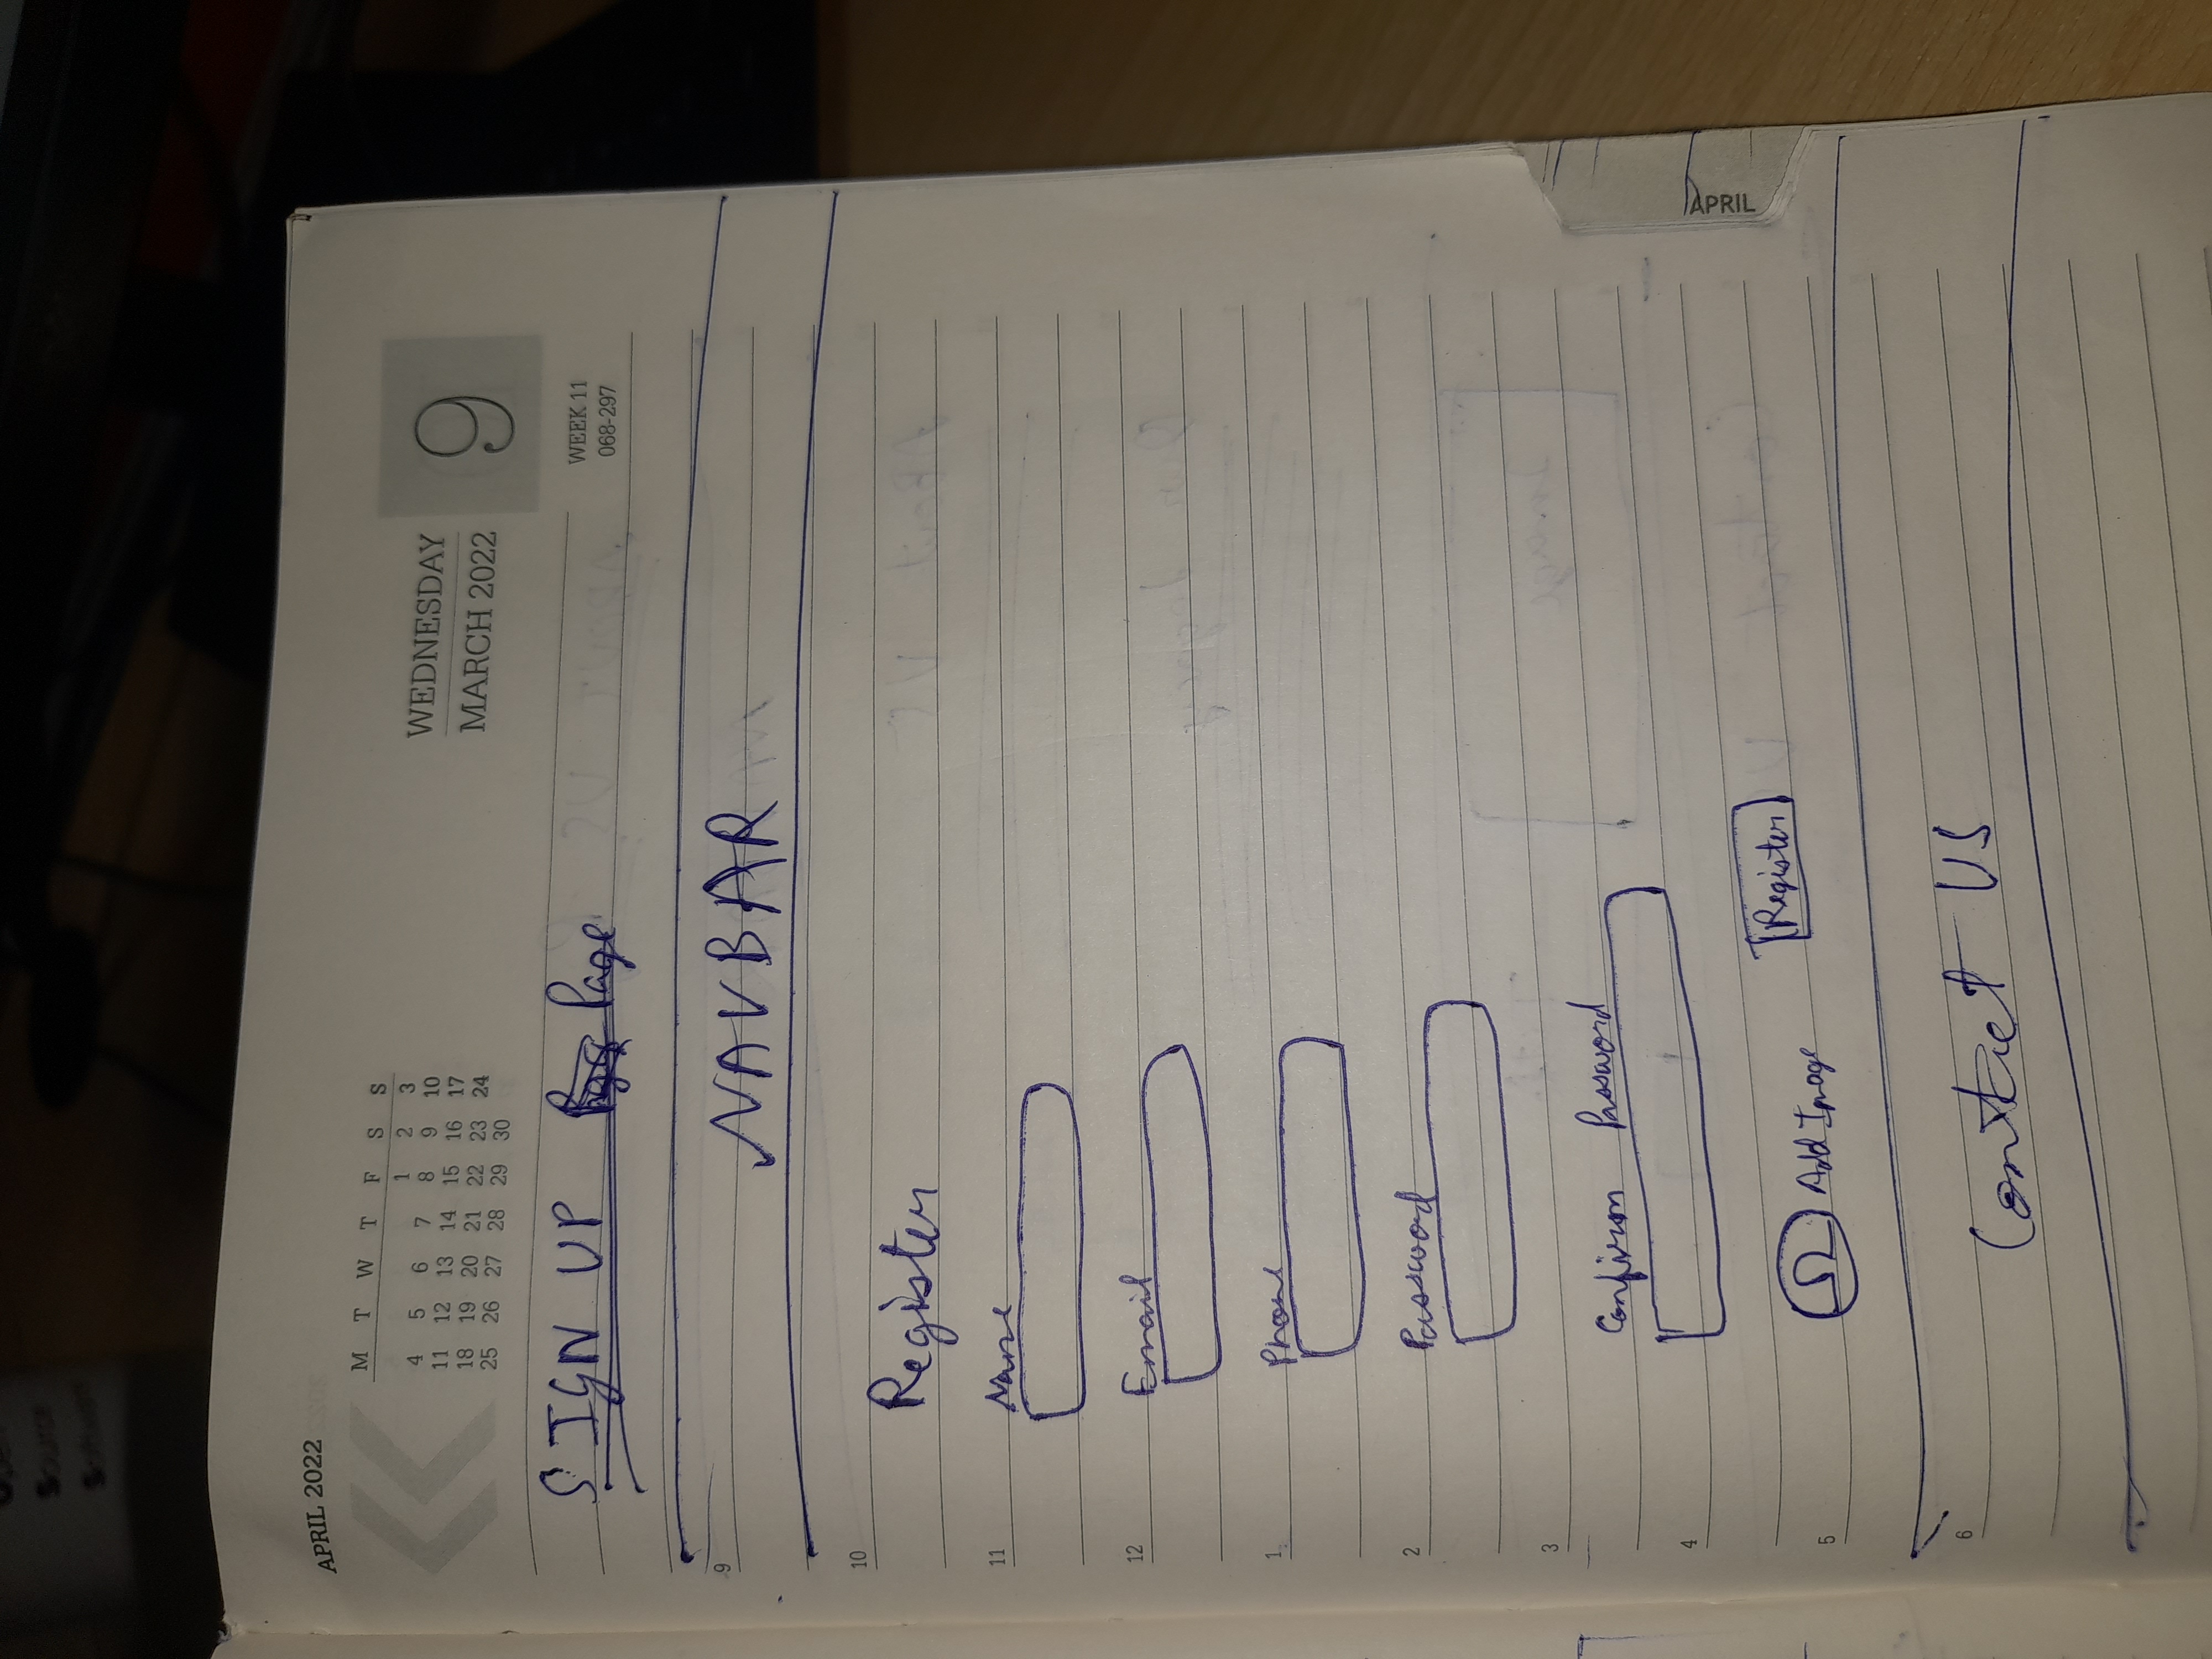 Open
Source
Software
APRIL 2022
M T W T F S S
1 2 3
4 5 6 7 8 9 10
11 12 13 14 15 16 17
18 19 20 21 22 23 24
25 26 27 28 29 30
WEDNESDAY
MARCH 2022
9
WEEK 11
068-297
SIGN UP Page
9
NAVBAR
10
Register
11
Name
12
Email
1
Phone
2
Password
3
Confirm Password
4
Register
5
Add Image
6
Contact US
APRIL